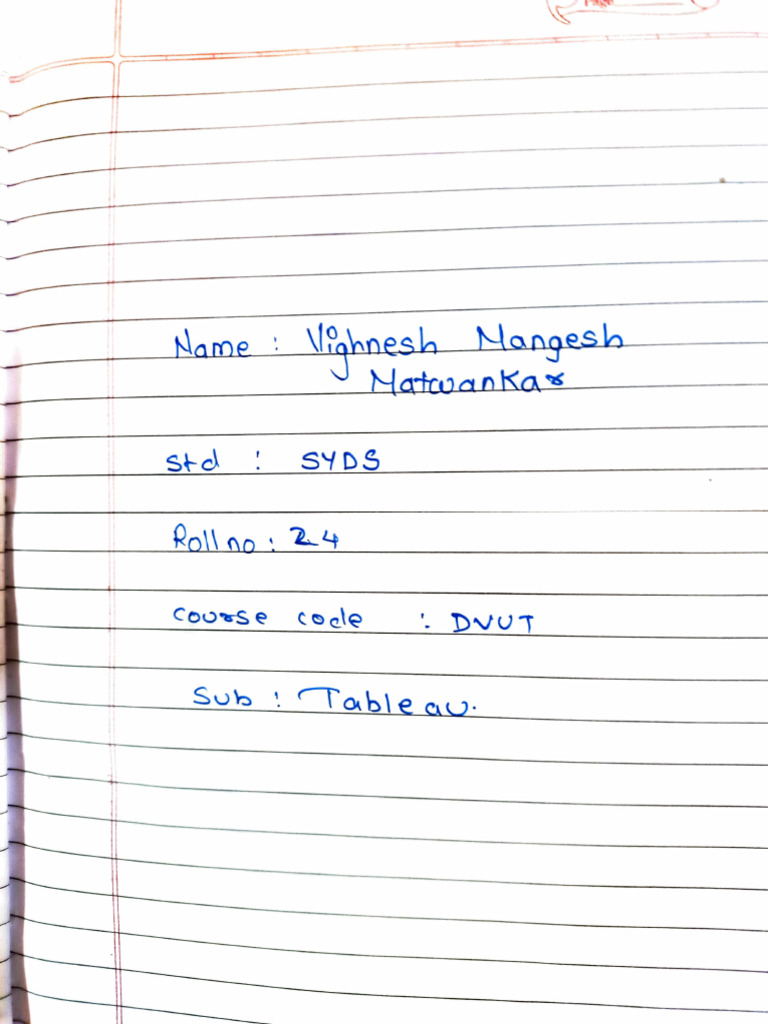 Name : Vighnesh Mangesh
Matwankar
Std : SYDS
Roll no : 24
course code : DVUT
Sub : Tableau.